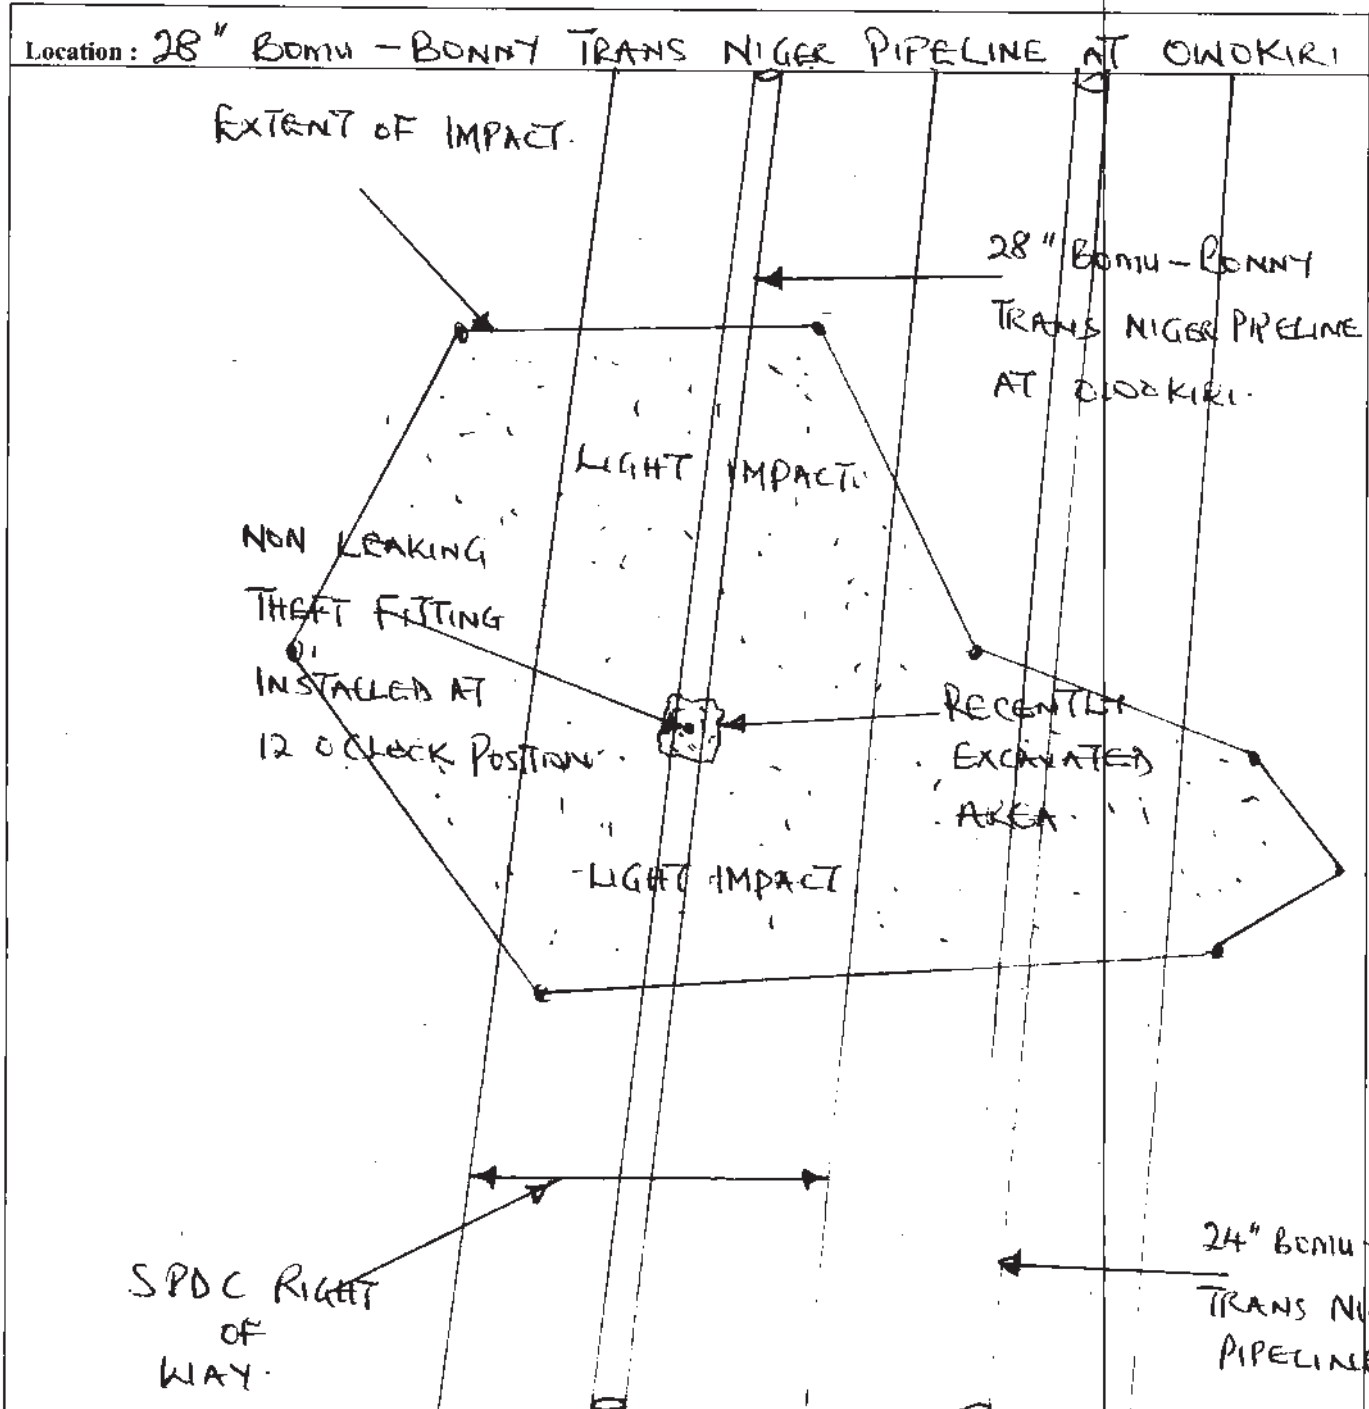 Location : 28" BOMU - BONNY TRANS NIGER PIPELINE AT OWOKIRI
EXTENT OF IMPACT.
28" BOMU - BONNY
TRANS NIGER PIPELINE
AT OWOKIRI.
LIGHT IMPACT.
NON LEAKING
THEFT FITTING
INSTALLED AT
12 O CLOCK POSITION.
RECENTLY
EXCAVATED
AREA.
LIGHT IMPACT
SPDC RIGHT
OF
WAY.
24" BOMU -
TRANS NI
PIPELINE